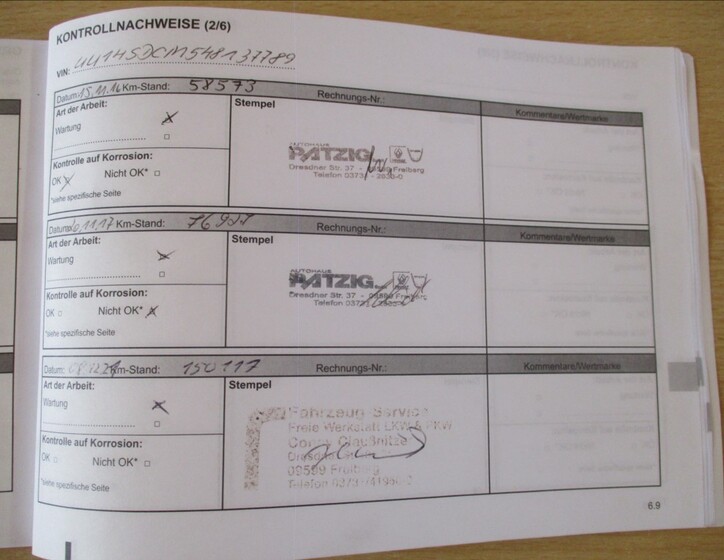 KONTROLLNACHWEISE (2/6)
VIN: UU14SDCM548137789
Datum: 15.11.16 Km-Stand: 58573 Rechnungs-Nr.: Kommentare/Wertmarke
Art der Arbeit: Stempel
Wartung X
Kontrolle auf Korrosion:
OK X Nicht OK*
*siehe spezifische Seite
AUTOHAUS
PATZIG
Dresdner Str. 37 - Freiberg
Telefon
Datum: .11.17 Km-Stand: Rechnungs-Nr.: Kommentare/Wertmarke
Art der Arbeit: Stempel
Wartung X
Kontrolle auf Korrosion:
OK Nicht OK* X
*siehe spezifische Seite
AUTOHAUS
PATZIG
Dresdner Str. 37 - Freiberg
Telefon
Datum: Km-Stand: 150117 Rechnungs-Nr.: Kommentare/Wertmarke
Art der Arbeit: Stempel
Wartung X
Kontrolle auf Korrosion:
OK Nicht OK*
*siehe spezifische Seite
Fahrzeug-Service
Freie Werkstatt LKW & PKW
09599 Freiberg
Telefon
6.9